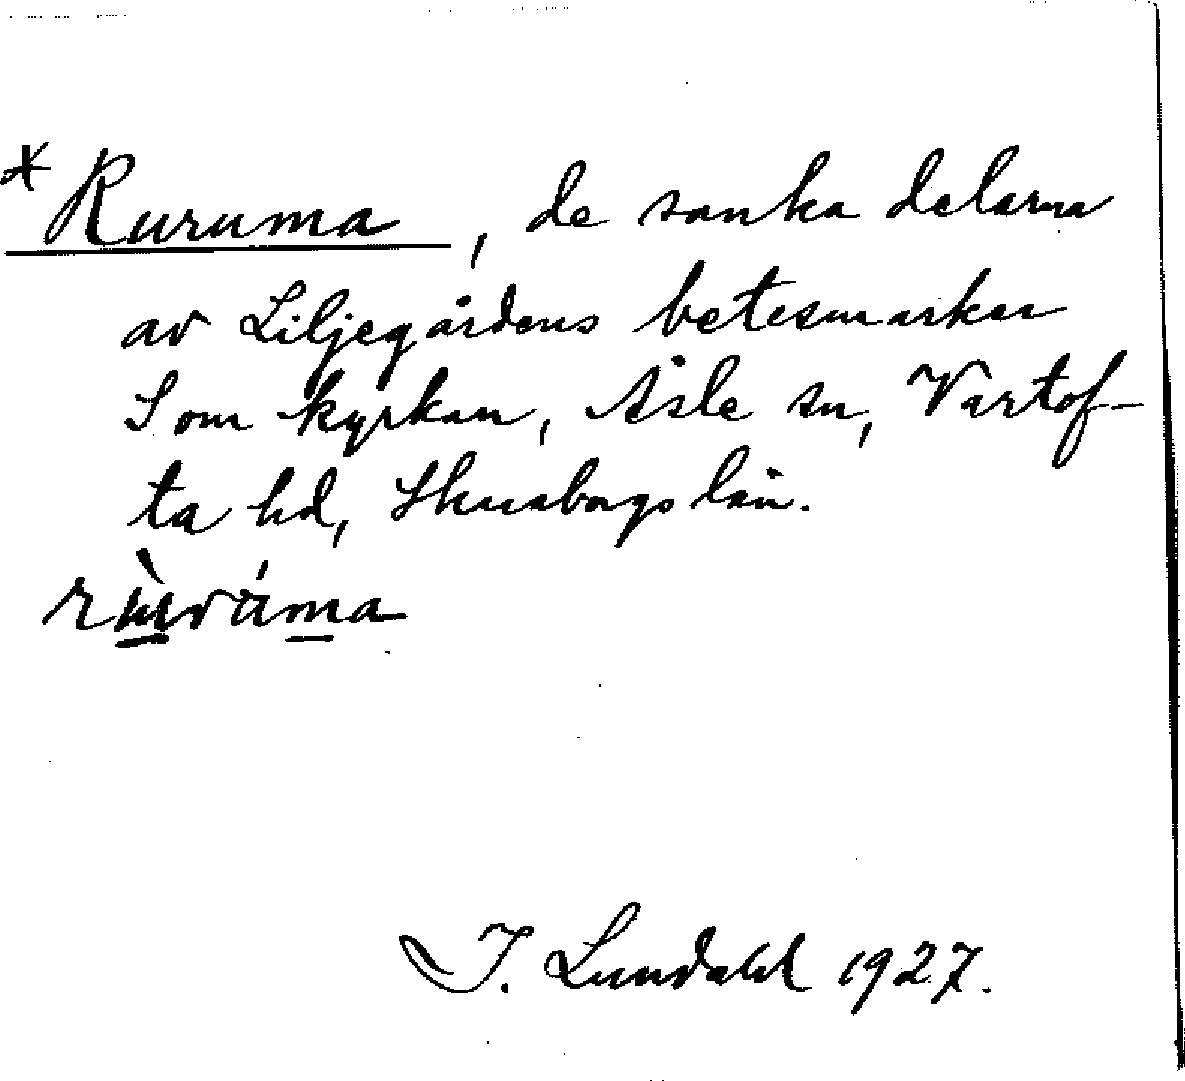 *Ruruma, de sanka delarna
av Liljegårdens betesmarker
S om kyrkan, Åsle sn, Vartof-
ta hd, Skaraborgs län.
J. Lundahl 1927.